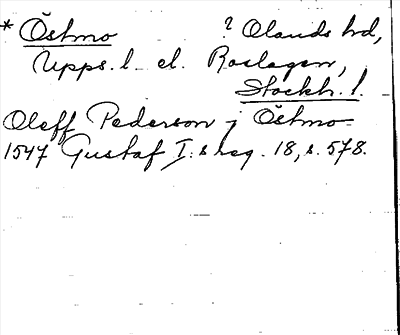 * Östmo ? Olands hd,
Upps. l. el. Roslagen,
Stockh. l.
Oleff Pederson j Östmo
1547 Gustaf I:s reg. 18, s. 578.